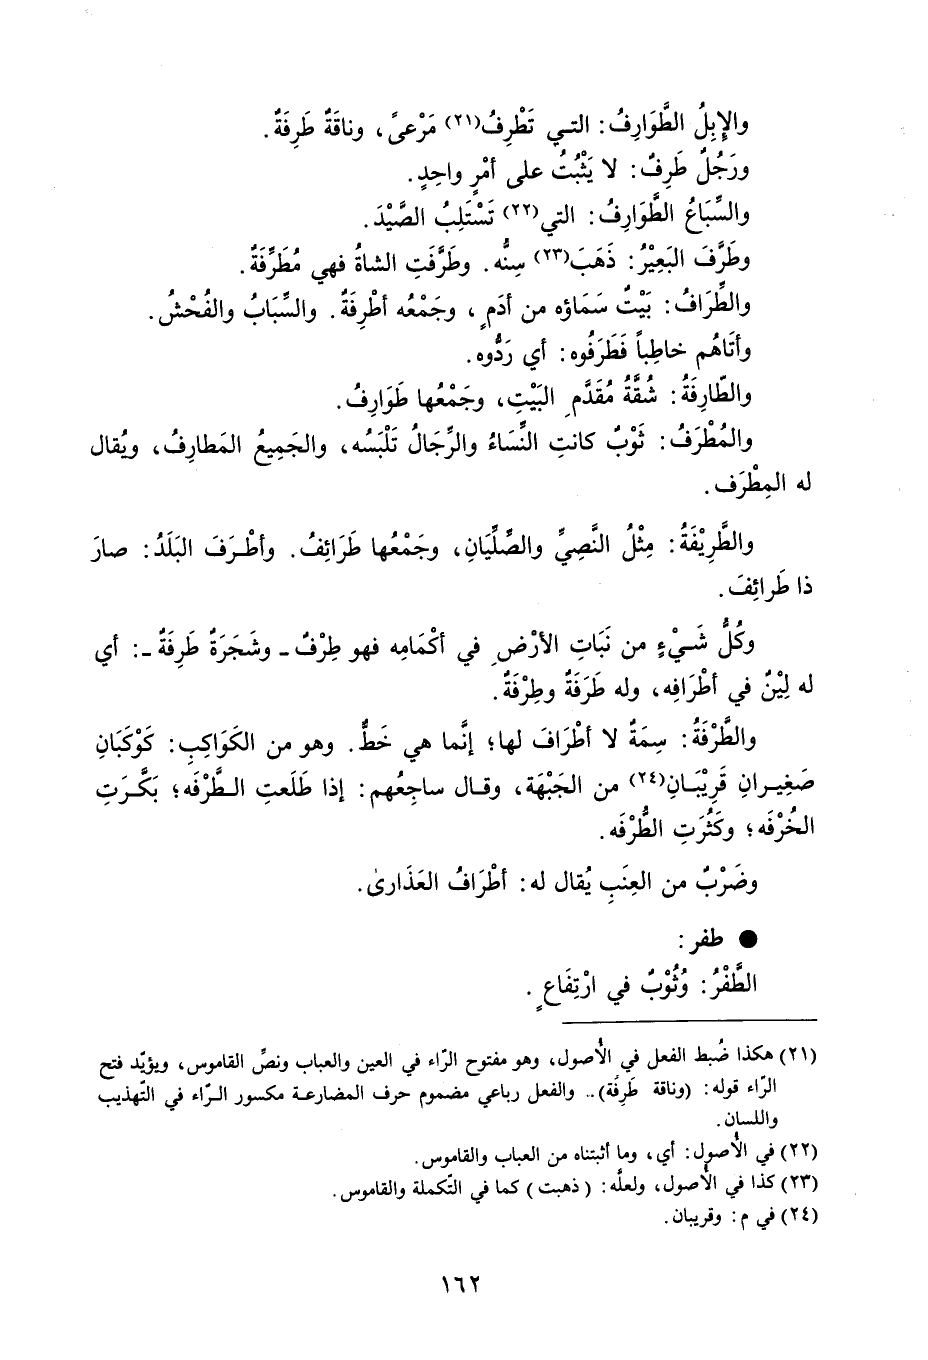 والإِبِلُ الطَّوَارِفُ: التي تَطْرِفُ(٢١) مَرْعىً، وناقَةٌ طَرِفَةٌ.
ورَجُلٌ طَرِفٌ: لا يَثْبُتُ على أمْرٍ واحِدٍ.
والسِّبَاعُ الطَّوَارِفُ: التي(٢٢) تَسْتَلِبُ الصَّيْدَ.
وطَرَّفَ البَعِيْرُ: ذَهَبَ(٢٣) سِنُّه. وطَرَّفَتِ الشاةُ فهي مُطَرِّفَةٌ.
والطِّرَافُ: بَيْتٌ سَمَاؤه من أدَمٍ، وجَمْعُه أطْرِفَةٌ. والسِّبَابُ والفُحْشُ.
وأتَاهُم خاطِباً فَطَرَفُوه: أي رَدُّوه.
والطّارِفَةُ: شُقَّةُ مُقَدَّمِ البَيْتِ، وجَمْعُها طَوَارِفُ.
والمُطْرَفُ: ثَوْبٌ كانتِ النِّسَاءُ والرِّجَالُ تَلْبَسُه، والجَمِيعُ المَطارِفُ، ويُقال
له المِطْرَف.
والطَّرِيْفَةُ: مِثْلُ النَّصِيِّ والصِّلِّيَانِ، وجَمْعُها طَرَائِفُ. وأطْرَفَ البَلَدُ: صارَ
ذا طَرائِفَ.
وكُلُّ شَيْءٍ من نَبَاتِ الأرْضِ في أكْمَامِه فهو طِرْفٌ ـ وشَجَرَةٌ طَرِفَةٌ ـ: أي
له لِيْنٌ في أطْرَافِه، وله طَرَفَةٌ وطِرْفَةٌ.
والطَّرْفَةُ: سِمَةٌ لا أطْرَافَ لها؛ إنَّما هي خَطٌّ. وهو من الكَوَاكِبِ: كَوْكَبَانِ
صَغِيرانِ قَرِيْبَانِ(٢٤) من الجَبْهَة، وقال ساجِعُهم: إذا طَلَعتِ الطَّرْفَه؛ بَكَّرَتِ
الخُرْفَه؛ وكَثُرَتِ الطُّرْفَه.
وضَرْبٌ من العِنَبِ يُقال له: أطْرَافُ العَذَارىٰ.
● طفر:
الطَّفْرُ: وُثُوْبٌ في ارْتِفَاعٍ.
(٢١) هكذا ضُبط الفعل في الأُصول، وهو مفتوح الرّاء في العين والعباب ونصِّ القاموس، ويؤيّد فتح
الرّاء قوله: (وناقة طَرِفَة).. والفعل رباعي مضموم حرف المضارعة مكسور الرّاء في التهذيب
واللسان.
(٢٢) في الأُصول: أي، وما أثبتناه من العباب والقاموس.
(٢٣) كذا في الأُصول، ولعلَّه: (ذهبت) كما في التّكملة والقاموس.
(٢٤) في م: وقريبان.
١٦٢